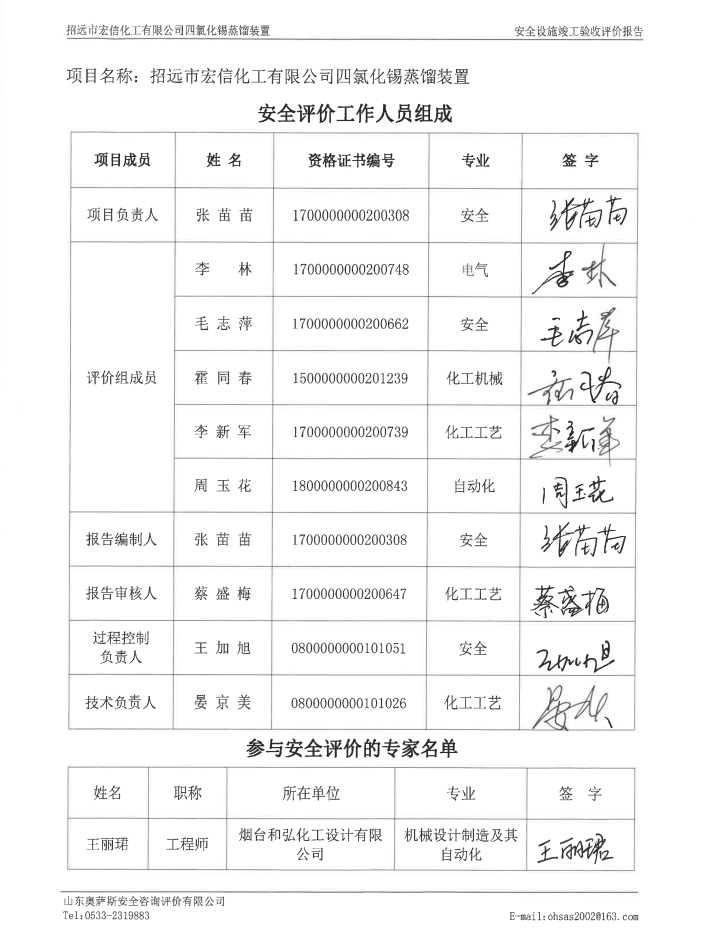 招远市宏信化工有限公司四氯化锡蒸馏装置 安全设施竣工验收评价报告
项目名称：招远市宏信化工有限公司四氯化锡蒸馏装置
安全评价工作人员组成
项目成员 姓 名 资格证书编号 专业 签 字
项目负责人 张 苗 苗 1700000000200308 安全 张苗苗
评价组成员
李 林 1700000000200748 电气 李林
毛 志 萍 1700000000200662 安全 毛志萍
霍 同 春 1500000000201239 化工机械
李 新 军 1700000000200739 化工工艺 李新军
周 玉 花 1800000000200843 自动化 周玉花
报告编制人 张 苗 苗 1700000000200308 安全 张苗苗
报告审核人 蔡 盛 梅 1700000000200647 化工工艺 蔡盛梅
过程控制
负责人
王 加 旭 0800000000101051 安全 王加旭
技术负责人 晏 京 美 0800000000101026 化工工艺
参与安全评价的专家名单
姓名 职称 所在单位 专业 签 字
王丽珺 工程师 烟台和弘化工设计有限
公司
机械设计制造及其
自动化
王丽珺
山东奥萨斯安全咨询评价有限公司
Tel:0533-2319883 E-mail:ohsas2002@163.com